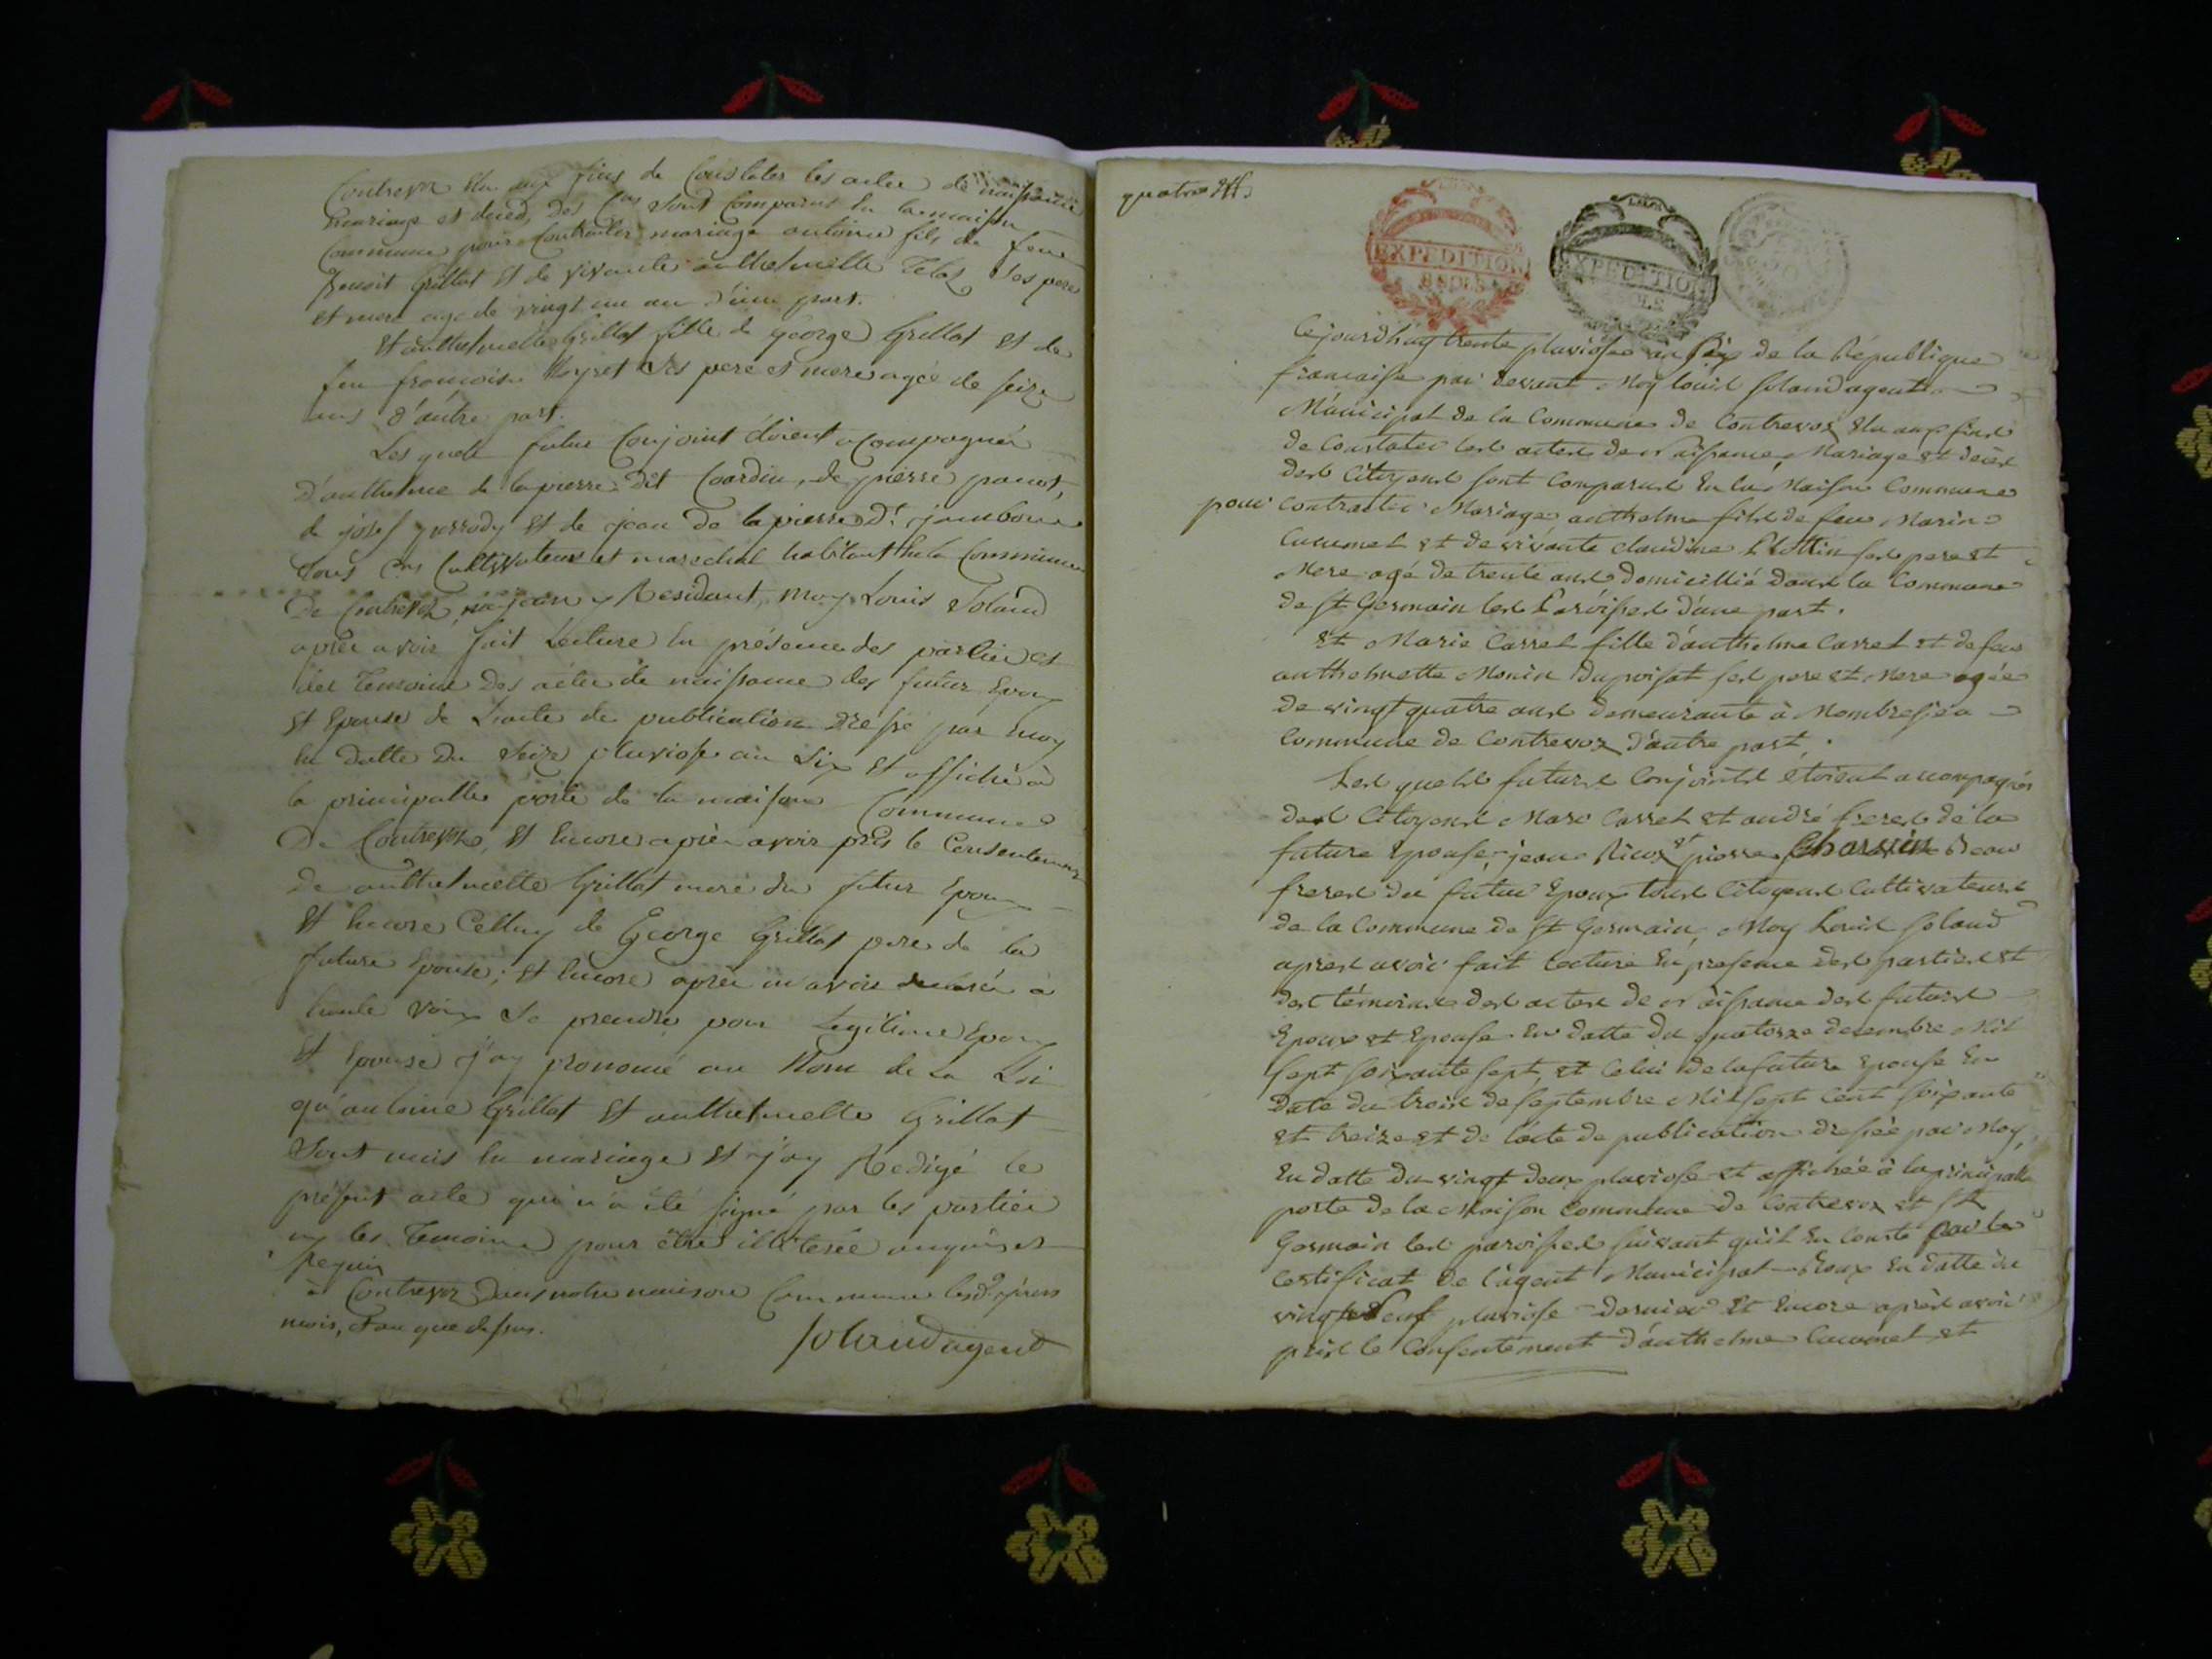 Contrevoz Elu aux fins de Constater les actes de naissance
mariage et deced, des Cns sont Comparut En la maison
Commune pour Contracter mariage antoine fils de feu
Benoit Grillat Et de vivante anthelmette Telaz ses pere
et mere age de vingt un an d'une part.
Et anthelmette Grillat fille de George Grillat Et de
feu françoise Meyret ses pere et mere agée de seize
ans d'autre part.
Les quels futur Conjoint étoient acompagnée
D'anthelme de lapierre dit Cardin, de pierre pancet,
de josef perrody Et de jean de lapierre dt jambon
tous Cns Cultivateur et marechal habitant la Commune
De Contrevoz y Residant, Moy Louis Soland
après avoir fait Lecture En présence des parties et
des Temoins Des actes de naissance des futur Epoux
Et Epouse de L'acte de publication Dressé par moy
En datte Du Seize pluviose an Six Et affiché à
la principalle porte de la maison Commune
De Contrevoz, Et Encore après avoir pris le Consentement
de anthelmette Grillat mere du futur Epoux
Et Encore Celluy de George Grillat pere de la
future Epouse; Et Encore après avoir declaré à
haute voix Se prendre pour Legitime Epoux
Et Epouse j'ay prononcé au Nom de La Loi
qu'antoine Grillat Et anthelmette Grillat
Sont unis En mariage Et j'ay Redigé le
présent acte qui n'a été signé par les parties
ny les Temoins pour être illiterée enquis et
requis
à Contrevoz Dans notre maison Commune lesd. jours
mois, et an que dessus.
Solandagent
quatre
EXPEDITION
8 SOLS
EXPEDITION
SOLS
Cejourdhuy trente pluviose an six de la République
francaise par devant Moy Louis Soland agent
Municipal de la Commune de Contrevoz Elu aux fins
de Constater les actes de Naissance, Mariage et décès
des Citoyens sont Comparus En la Maison Commune
pour contracter Mariage anthelme fils de feu Marin
Cucumel et de vivante claudine Chottin ses pere et
Mere agé de trente ans domicillié dans la Commune
de St Germain les Paroisses d'une part.
Et Marie Carret fille d'anthelme Carret et de feue
anthelmette Monin Dupoisat ses pere et Mere agée
de vingt quatre ans demeurante à Mombressieu
Commune de Contrevoz d'autre part.
Les quels futurs Conjoints étoient accompagnés
des Citoyens Marc Carret et andré freres de la
future Epouse, jean Rieux et pierre Charvin Beau
freres du futur Epoux tous Citoyens Cultivateurs
de la Commune de St Germain, Moy Louis Soland
apres avoir fait Lecture En presence des parties et
des témoins des actes de Naissance des futurs
Epoux et Epouse En datte du quatorze decembre Mil
sept soixante sept, et Celui de la future Epouse En
Date du trois de septembre Mil sept Cent soixante
et treize et de l'acte de publication dressée par Moy,
En datte du vingt deux pluviose et affichée à la principale
porte de la Maison Commune de Contrevoz et St
Germain les paroisses suivant qu'il En Conste par le
Certificat de l'agent Municipal Roux En datte du
vingt neuf pluviose Dernier Et Encore après avoir
pris le Consentement d'anthelme Cucumel et